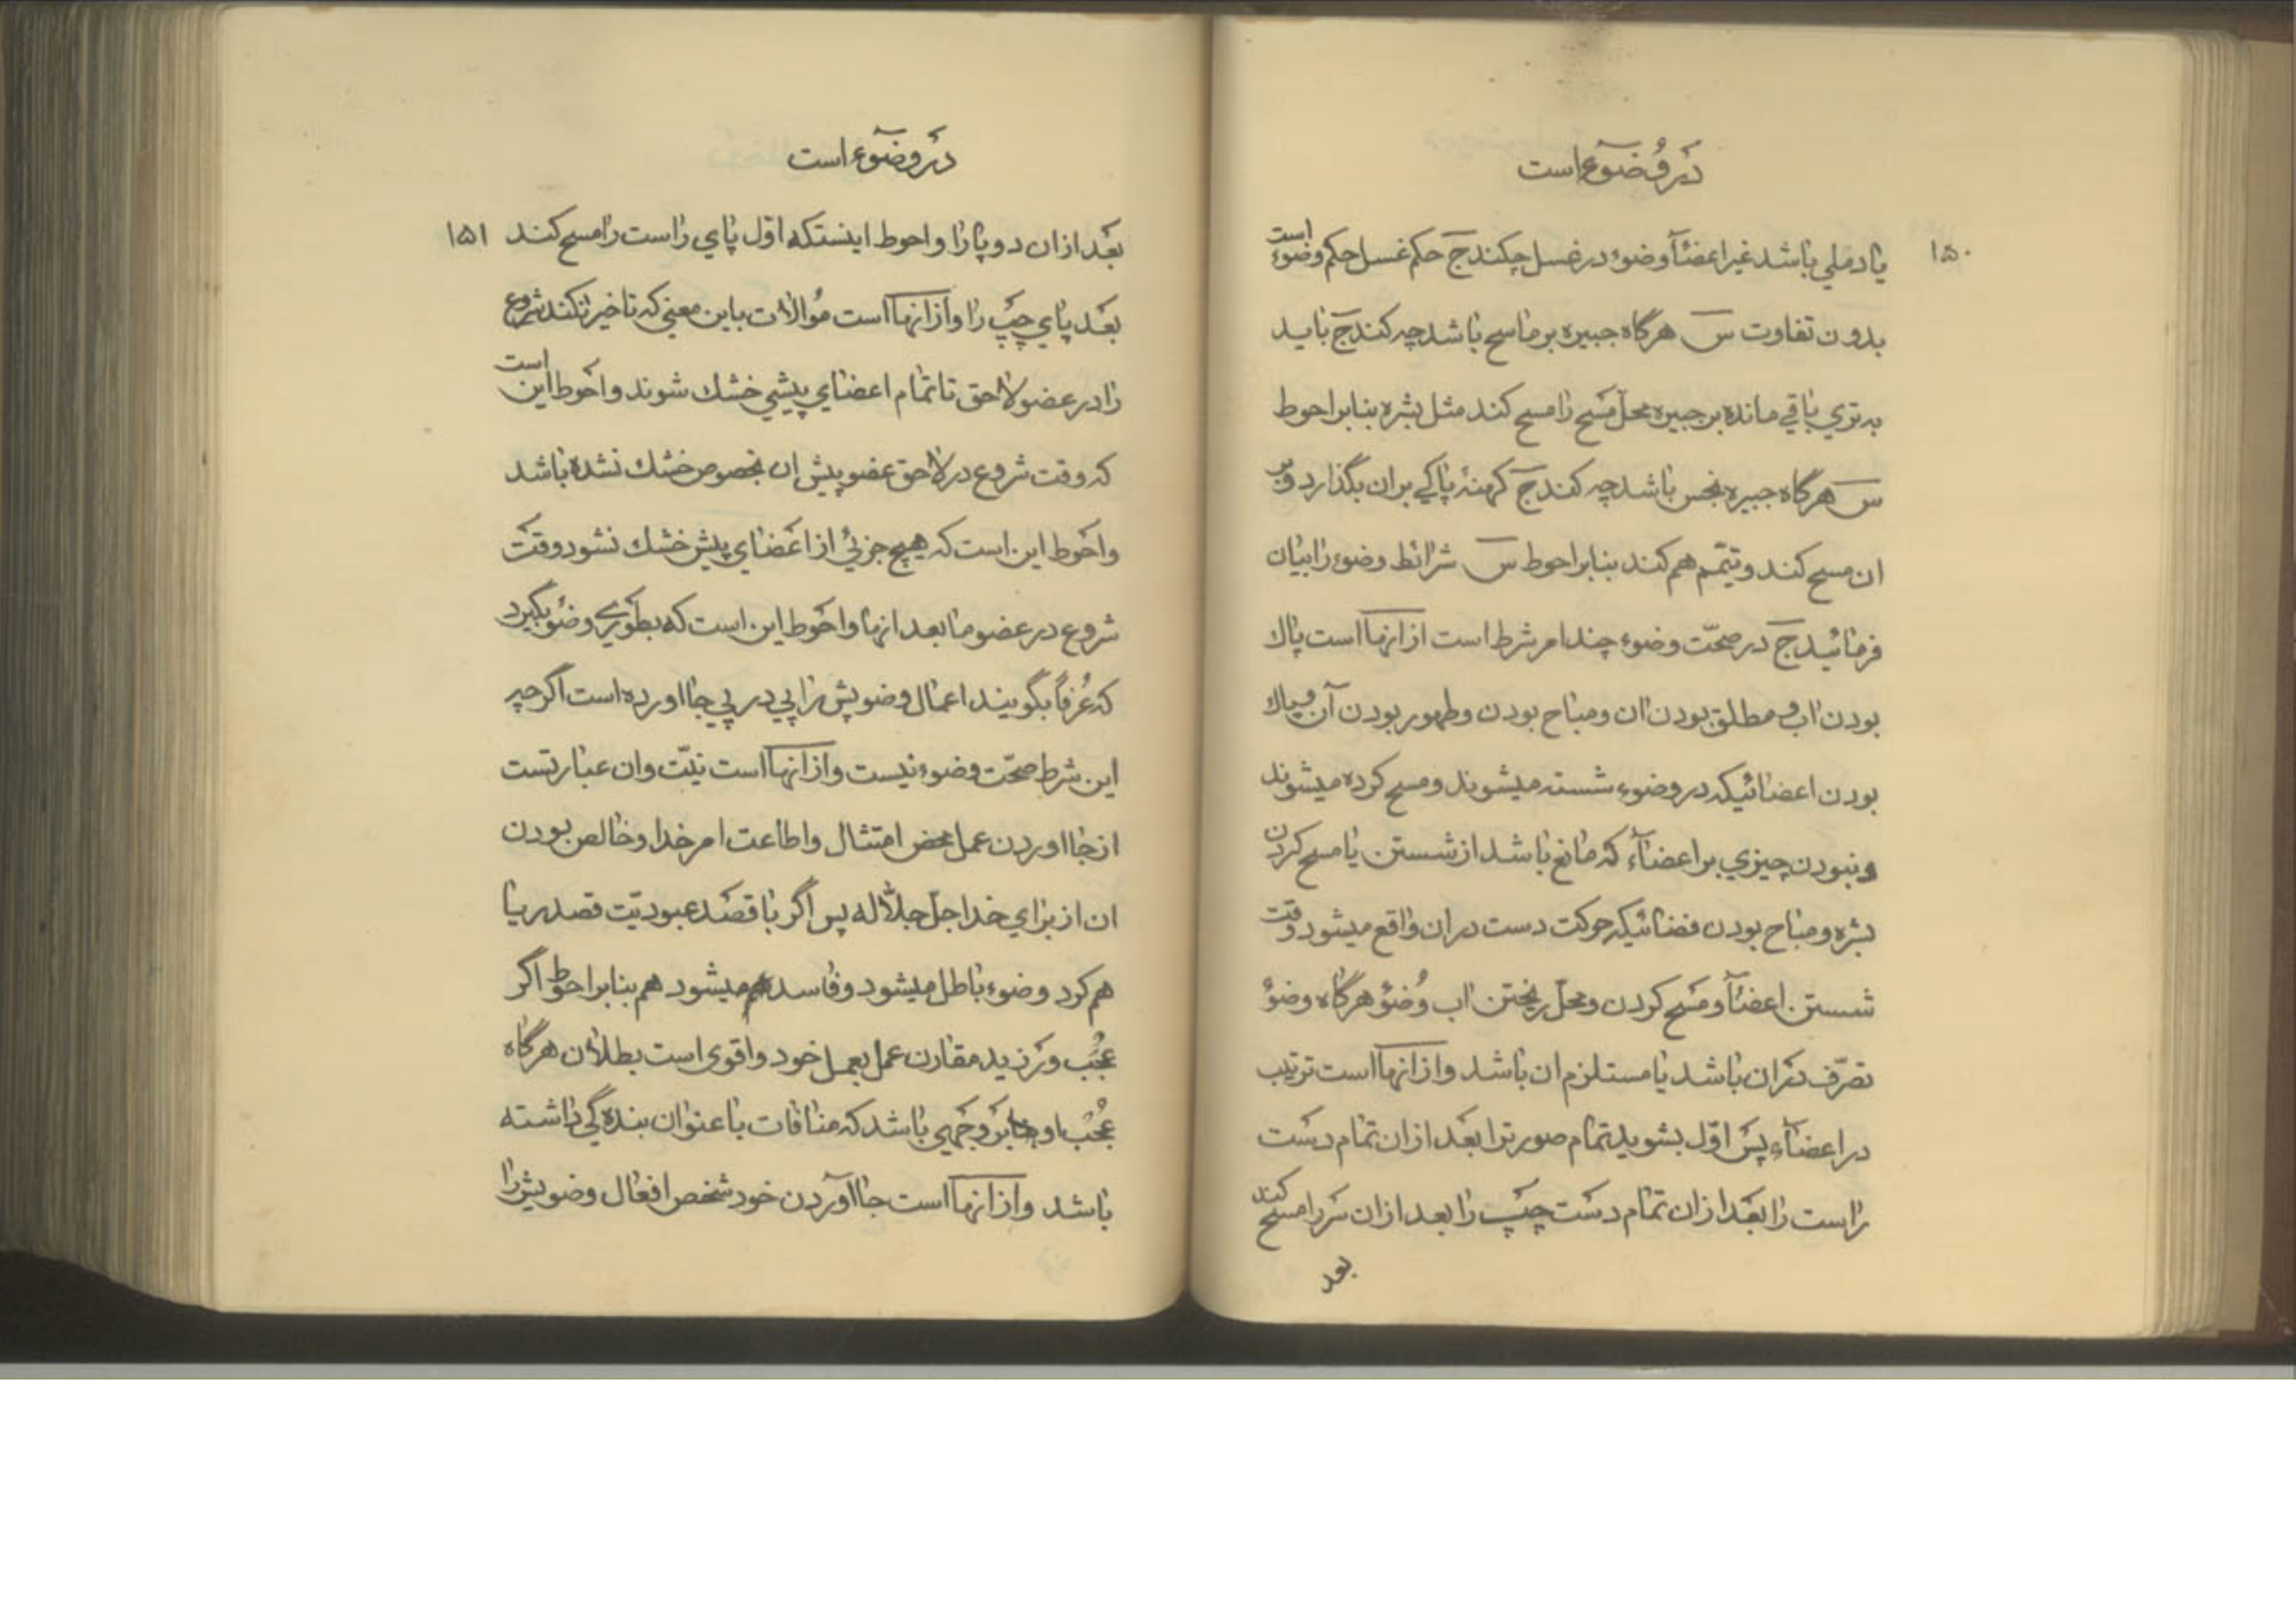 در وضوء است
۱۵۰
یا دملی باشد غیر اعضآ وضوء در غسل چکند جَ حکم غسل حکم وضوء است
بدون تفاوت سَ هرگاه جبیره بر ماسح باشد چه کند جَ باید
به تری باقی مانده بر جبیره محلّ مسح را مسح کند مثل بشره بنابر احوط
سَ هرگاه جبیره نجس باشد چه کند جَ کهنهٔ پاکی بران بگذارد و بر
ان مسح کند و تیمّم هم کند بنابر احوط سَ شرائط وضوء را بیان
فرمائید جَ در صحّت وضوء چند امر شرط است از انها است پاك
بودن اب و مطلق بودن ان و مباح بودن و طهور بودن آن و پاك
بودن اعضائیکه در وضوء شسته میشوند و مسح کرده میشوند
و نبودن چیزی بر اعضآء که مانع باشد از شستن یا مسح کردن
بشره و مباح بودن فضائیکه حرکت دست در ان واقع میشود وقت
شستن اعضآ و مسح کردن و محلّ ریختن اب وُضوٴ هرگاه وضوٴ
تصرّف در ان باشد یا مستلزم ان باشد و از انها است ترتیب
در اعضآء پس اوّل بشوید تمام صورترا بعد از ان تمام دست
راست را بعد از ان تمام دست چپ را بعد از ان سر را مسح کند
بعد
در وضوء است
بعد از ان دو پا را و احوط اینستکه اوّل پای راست را مسح کند ۱۵۱
بعد پای چپ را و از انها است مُوالات باین معنی که تاخیر نکند شروع
را در عضو لاحق تا تمام اعضای پیشی خشك شوند و احوط این است
که وقت شروع در لاحق عضو پیش ان بخصوص خشك نشده باشد
و احوط این است که هیچ جزئی از اعضای پیش خشك نشود وقت
شروع در عضو ما بعد انها و احوط این است که بطوری وضوٴ بگیرد
که عُرفاً بگویند اعمال وضویش را پی در پی جا اورده است اگر چه
این شرط صحّت وضوء نیست و از انها است نیّت وان عبارتست
از جا اوردن عمل محض امتثال و اطاعت امر خدا و خالص بودن
ان از برای خدا جلّ جلاله پس اگر با قصد عبودیّت قصد ریا
هم کرد وضوء باطل میشود و فاسد هم میشود هم بنابر احوط اگر
عُجب ورزید مقارن عمل بعمل خود و اقوی است بطلان هرگاه
عُجب او بر وجهی باشد که منافات با عنوان بنده گی داشته
باشد و از انها است جا آوردن خود شخص افعال وضویش را